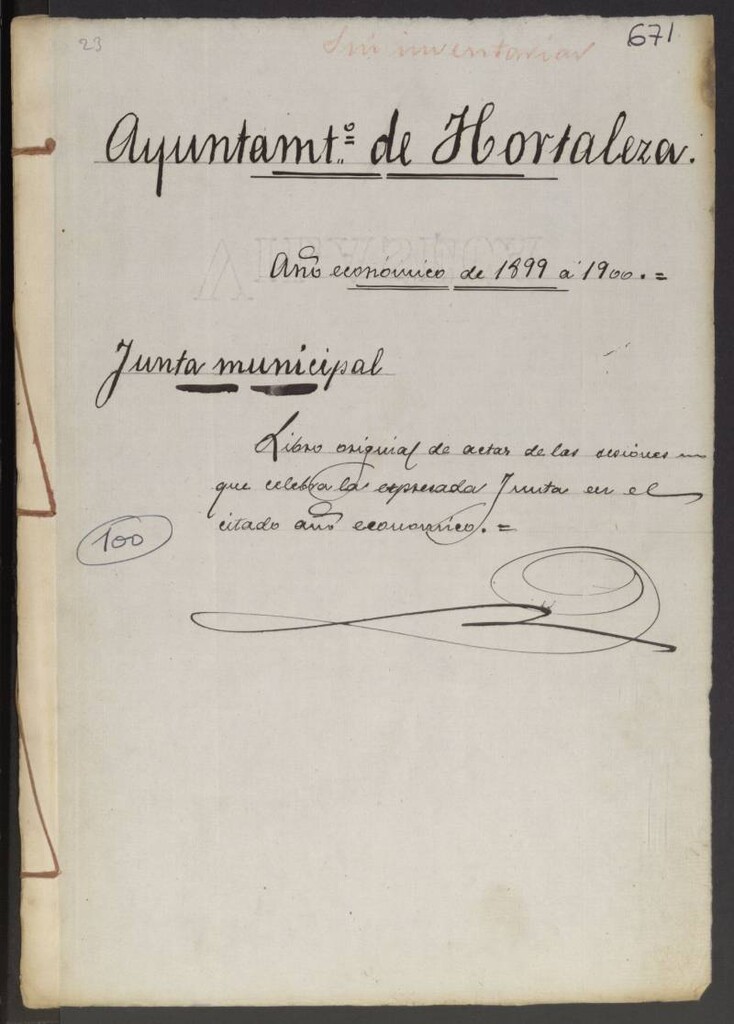 23
Sin inventariar
671
Ayuntamt.º de Hortaleza.
Año económico de 1899 á 1900.=
Junta municipal
Libro original de actas de las sesiones
que celebra la expresada Junta en el
citado año economico.=
100